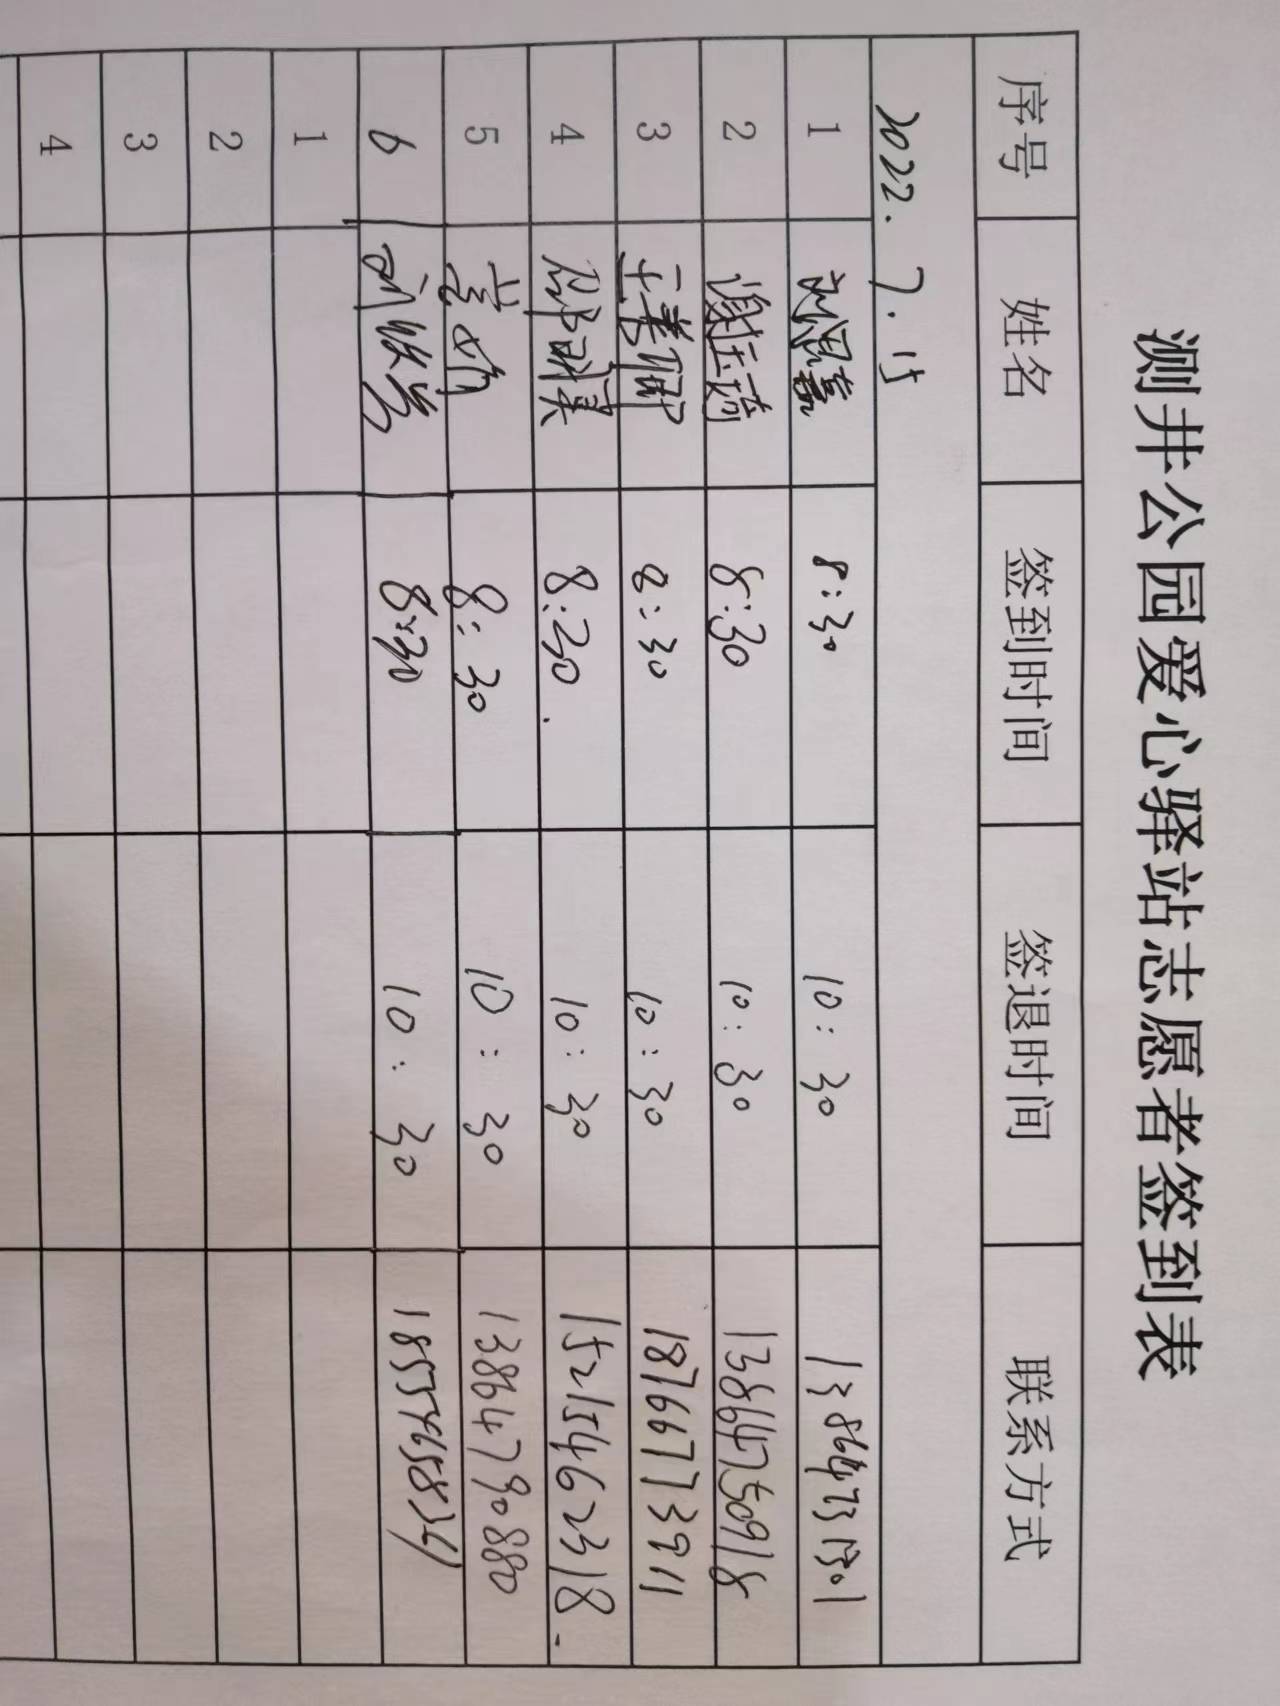 测井公园爱心驿站志愿者签到表
序号 姓名 签到时间 签退时间 联系方式
2022.7.15
1 刘思嘉 8:30 10:30
2 谢玉琦 8:30 10:30 13864750918
3 8:30 10:30 18766773911
4 8:30. 10:30 15215462318.
5 8:30 10:30 13864790880
6 8:30 10:30
1
2
3
4